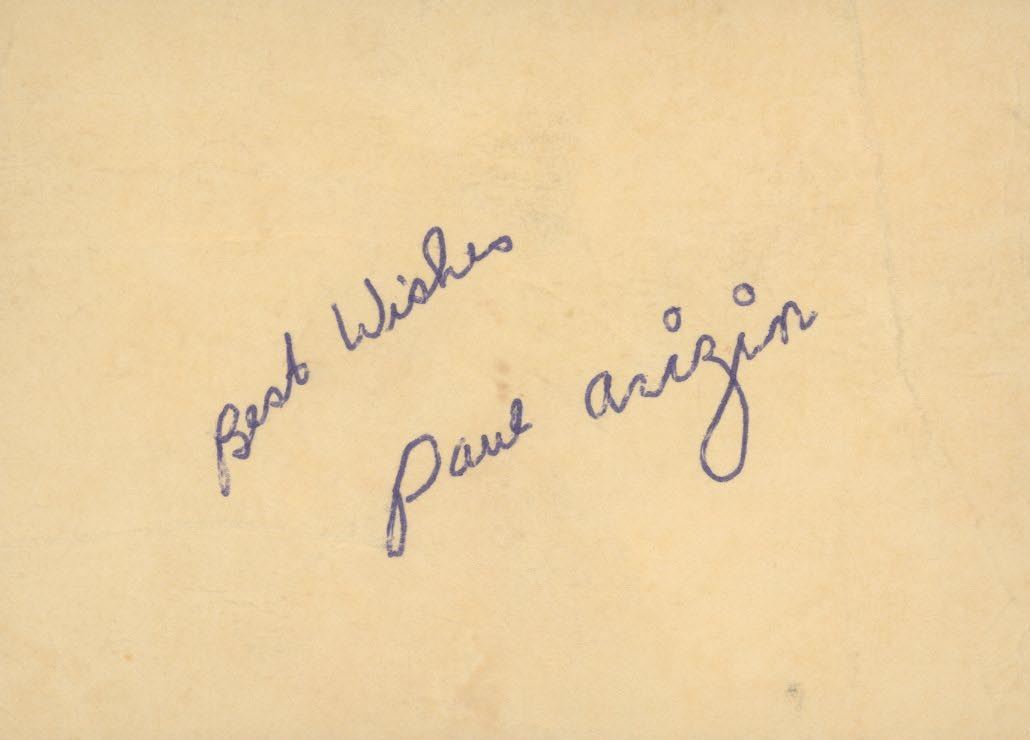 Best Wishes
Paul Arizin